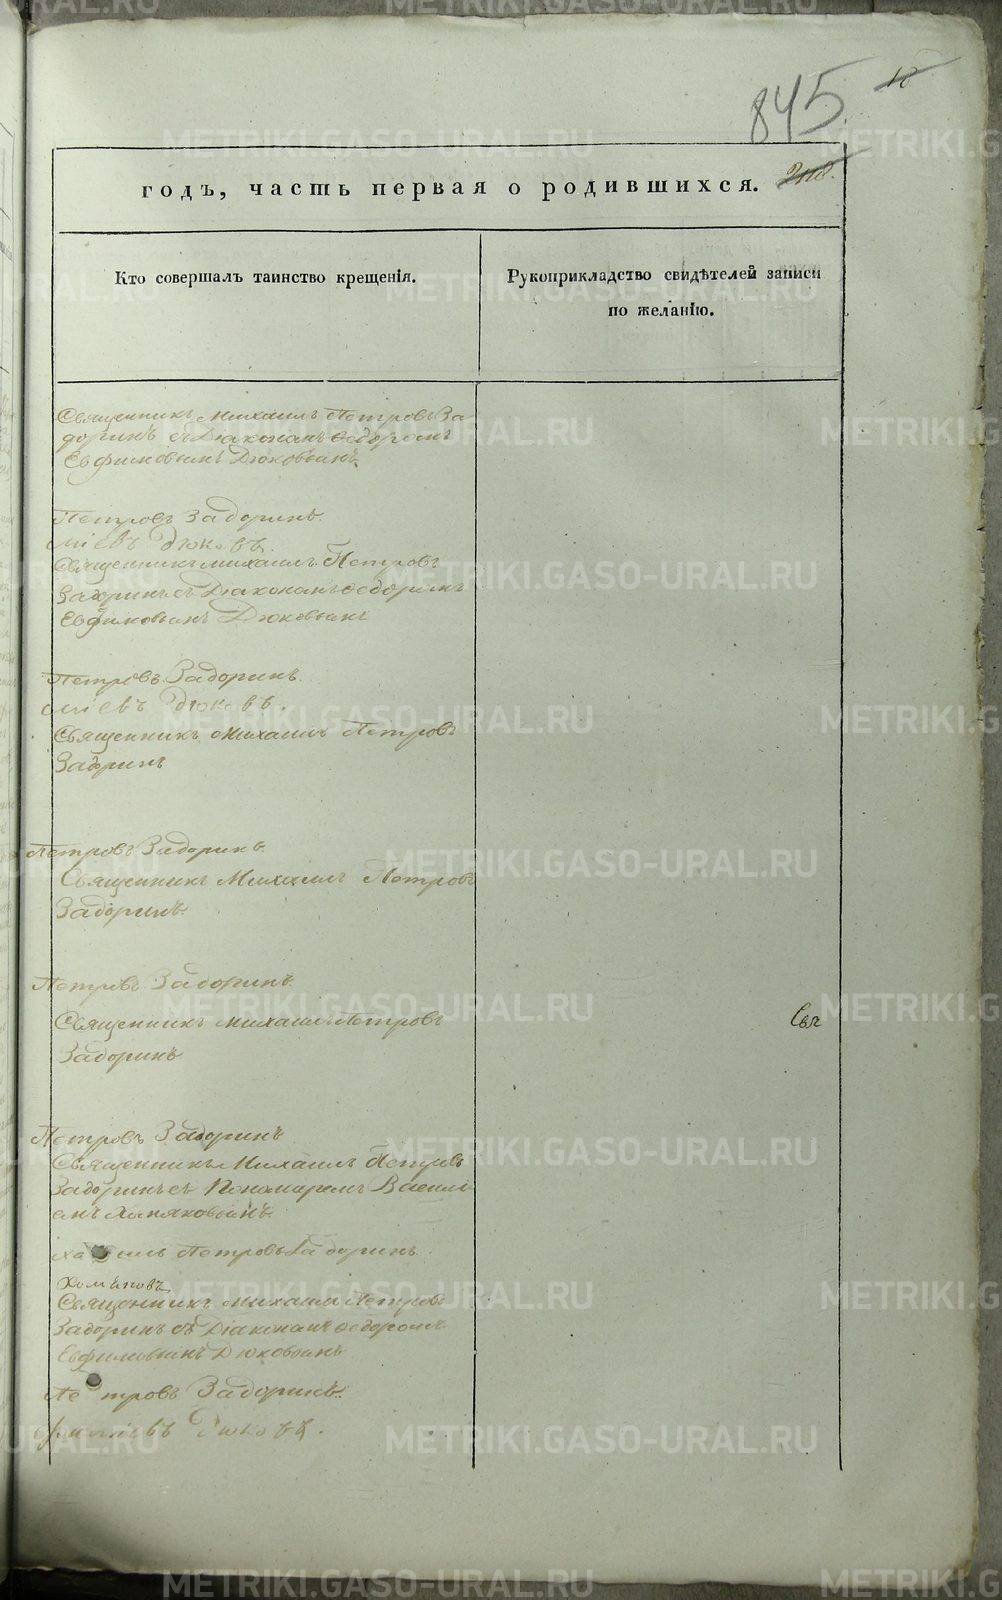 18
845.
годъ, часть первая о родившихся.
Кто совершалъ таинство крещенія.
Рукоприкладство свидѣтелей записи
по желанію.
Священникъ Михаилъ Петровъ За
доринъ съ Діакономъ Ѳедоромъ
Евфимовымъ Дюковымъ
Петровъ Задоринъ.
міевъ Дюковъ
Священникъ Михаилъ Петровъ
Задоринъ съ Діакономъ Ѳедоромъ
Евфимовымъ Дюковымъ
Петровъ Задоринъ.
міевъ Дюковъ.
Священникъ Михаилъ Петровъ
Задринъ
Петровъ Задоринъ.
Священникъ Михаилъ Петровъ
Задоринъ.
Петровъ Задоринъ.
Священникъ Михаилъ Петровъ
Задоринъ
Свя
Петровъ Задоринъ
Священникъ Михаилъ Петровъ
Задоринъ съ Пономаремъ Васили
емъ
хаилъ Петровъ Задоринъ.
Священникъ Михаилъ Петровъ
Задоринъ съ Діакономъ Ѳедоромъ
Евфимовымъ Дюковымъ
Петровъ Задоринъ.
фиміевъ Дюковъ.
METRIKI.GASO-URAL.RU